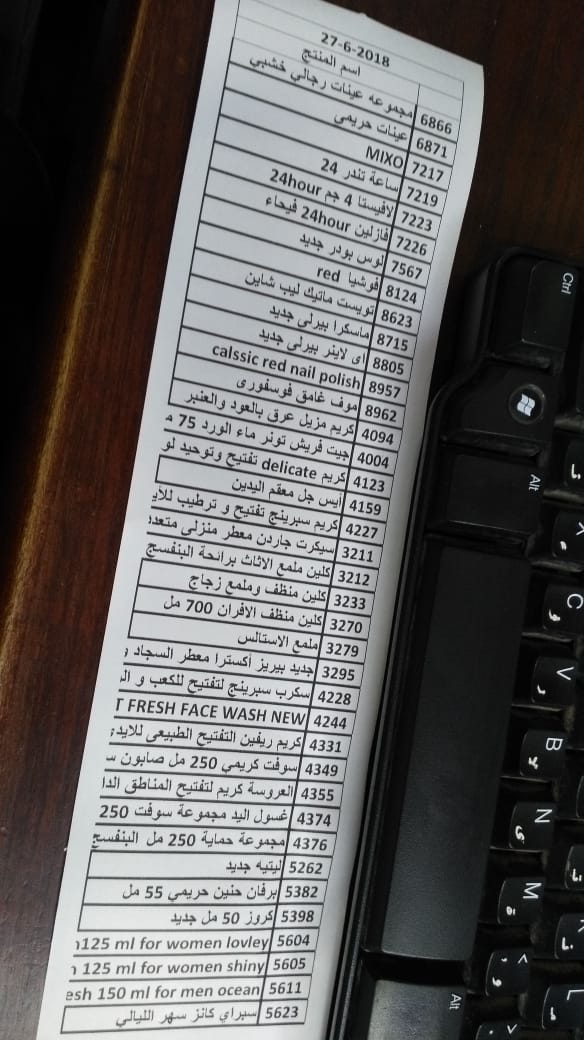 27-6-2018
اسم المنتج
6866 مجموعه عينات رجالي خشبي
6871 عينات حريمى
7217 MIXO
7219 ساعة تندر 24
7223 لافيستا 4 جم 24hour
7226 فازلين 24hour فيحاء
7567 لوس بودر جديد
8124 فوشيا red
8623 تويست ماتيك ليب شاين
8715 ماسكرا بيرلى جديد
8805 اى لاينر بيرلى جديد
8957 calssic red nail polish
8962 موف غامق فوسفورى
4094 كريم مزيل عرق بالعود والعنبر
4004 جيت فريش تونر ماء الورد 75 م
4123 كريم delicate تفتيح وتوحيد لو
4159 أيس جل معقم اليدين
4227 كريم سبرينج تفتيح و ترطيب للاي
3211 سيكرت جاردن معطر منزلى متعدد
3212 كلين ملمع الاثاث برائحة البنفسج
3233 كلين منظف وملمع زجاج
3270 كلين منظف الافران 700 مل
3279 ملمع الاستالس
3295 جديد بيريز أكسترا معطر السجاد و
4228 سكرب سبرينج لتفتيح للكعب و ال
4244 T FRESH FACE WASH NEW
4331 كريم ريفين التفتيح الطبيعى للايدى
4349 سوفت كريمي 250 مل صابون س
4355 العروسة كريم لتفتيح المناطق الدا
4374 غسول اليد مجموعة سوفت 250
4376 مجموعة حماية 250 مل البنفسج
5262 ليتيه جديد
5382 برفان حنين حريمي 55 مل
5398 كروز 50 مل جديد
5604 125 ml for women lovley
5605 125 ml for women shiny
5611 esh 150 ml for men ocean
5623 سبراي كانز سهر الليالي
Ctrl
Alt
C
V
B
N
M
L
Alt